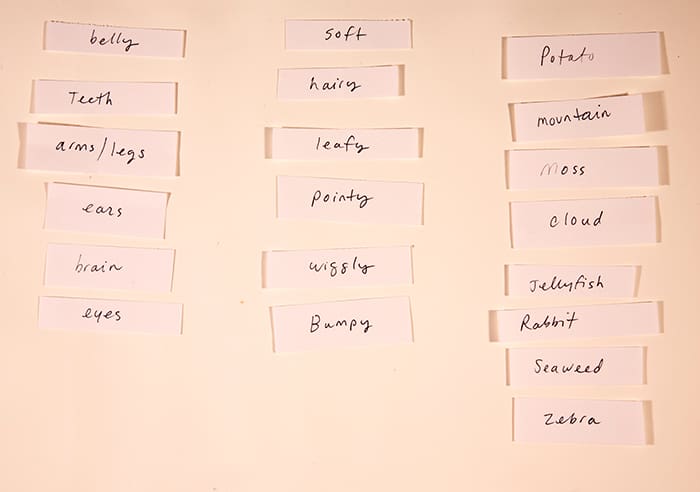 belly
Teeth
arms/legs
ears
brain
eyes
soft
hairy
leafy
pointy
wiggly
Bumpy
Potato
mountain
Moss
cloud
Jellyfish
Rabbit
Seaweed
Zebra